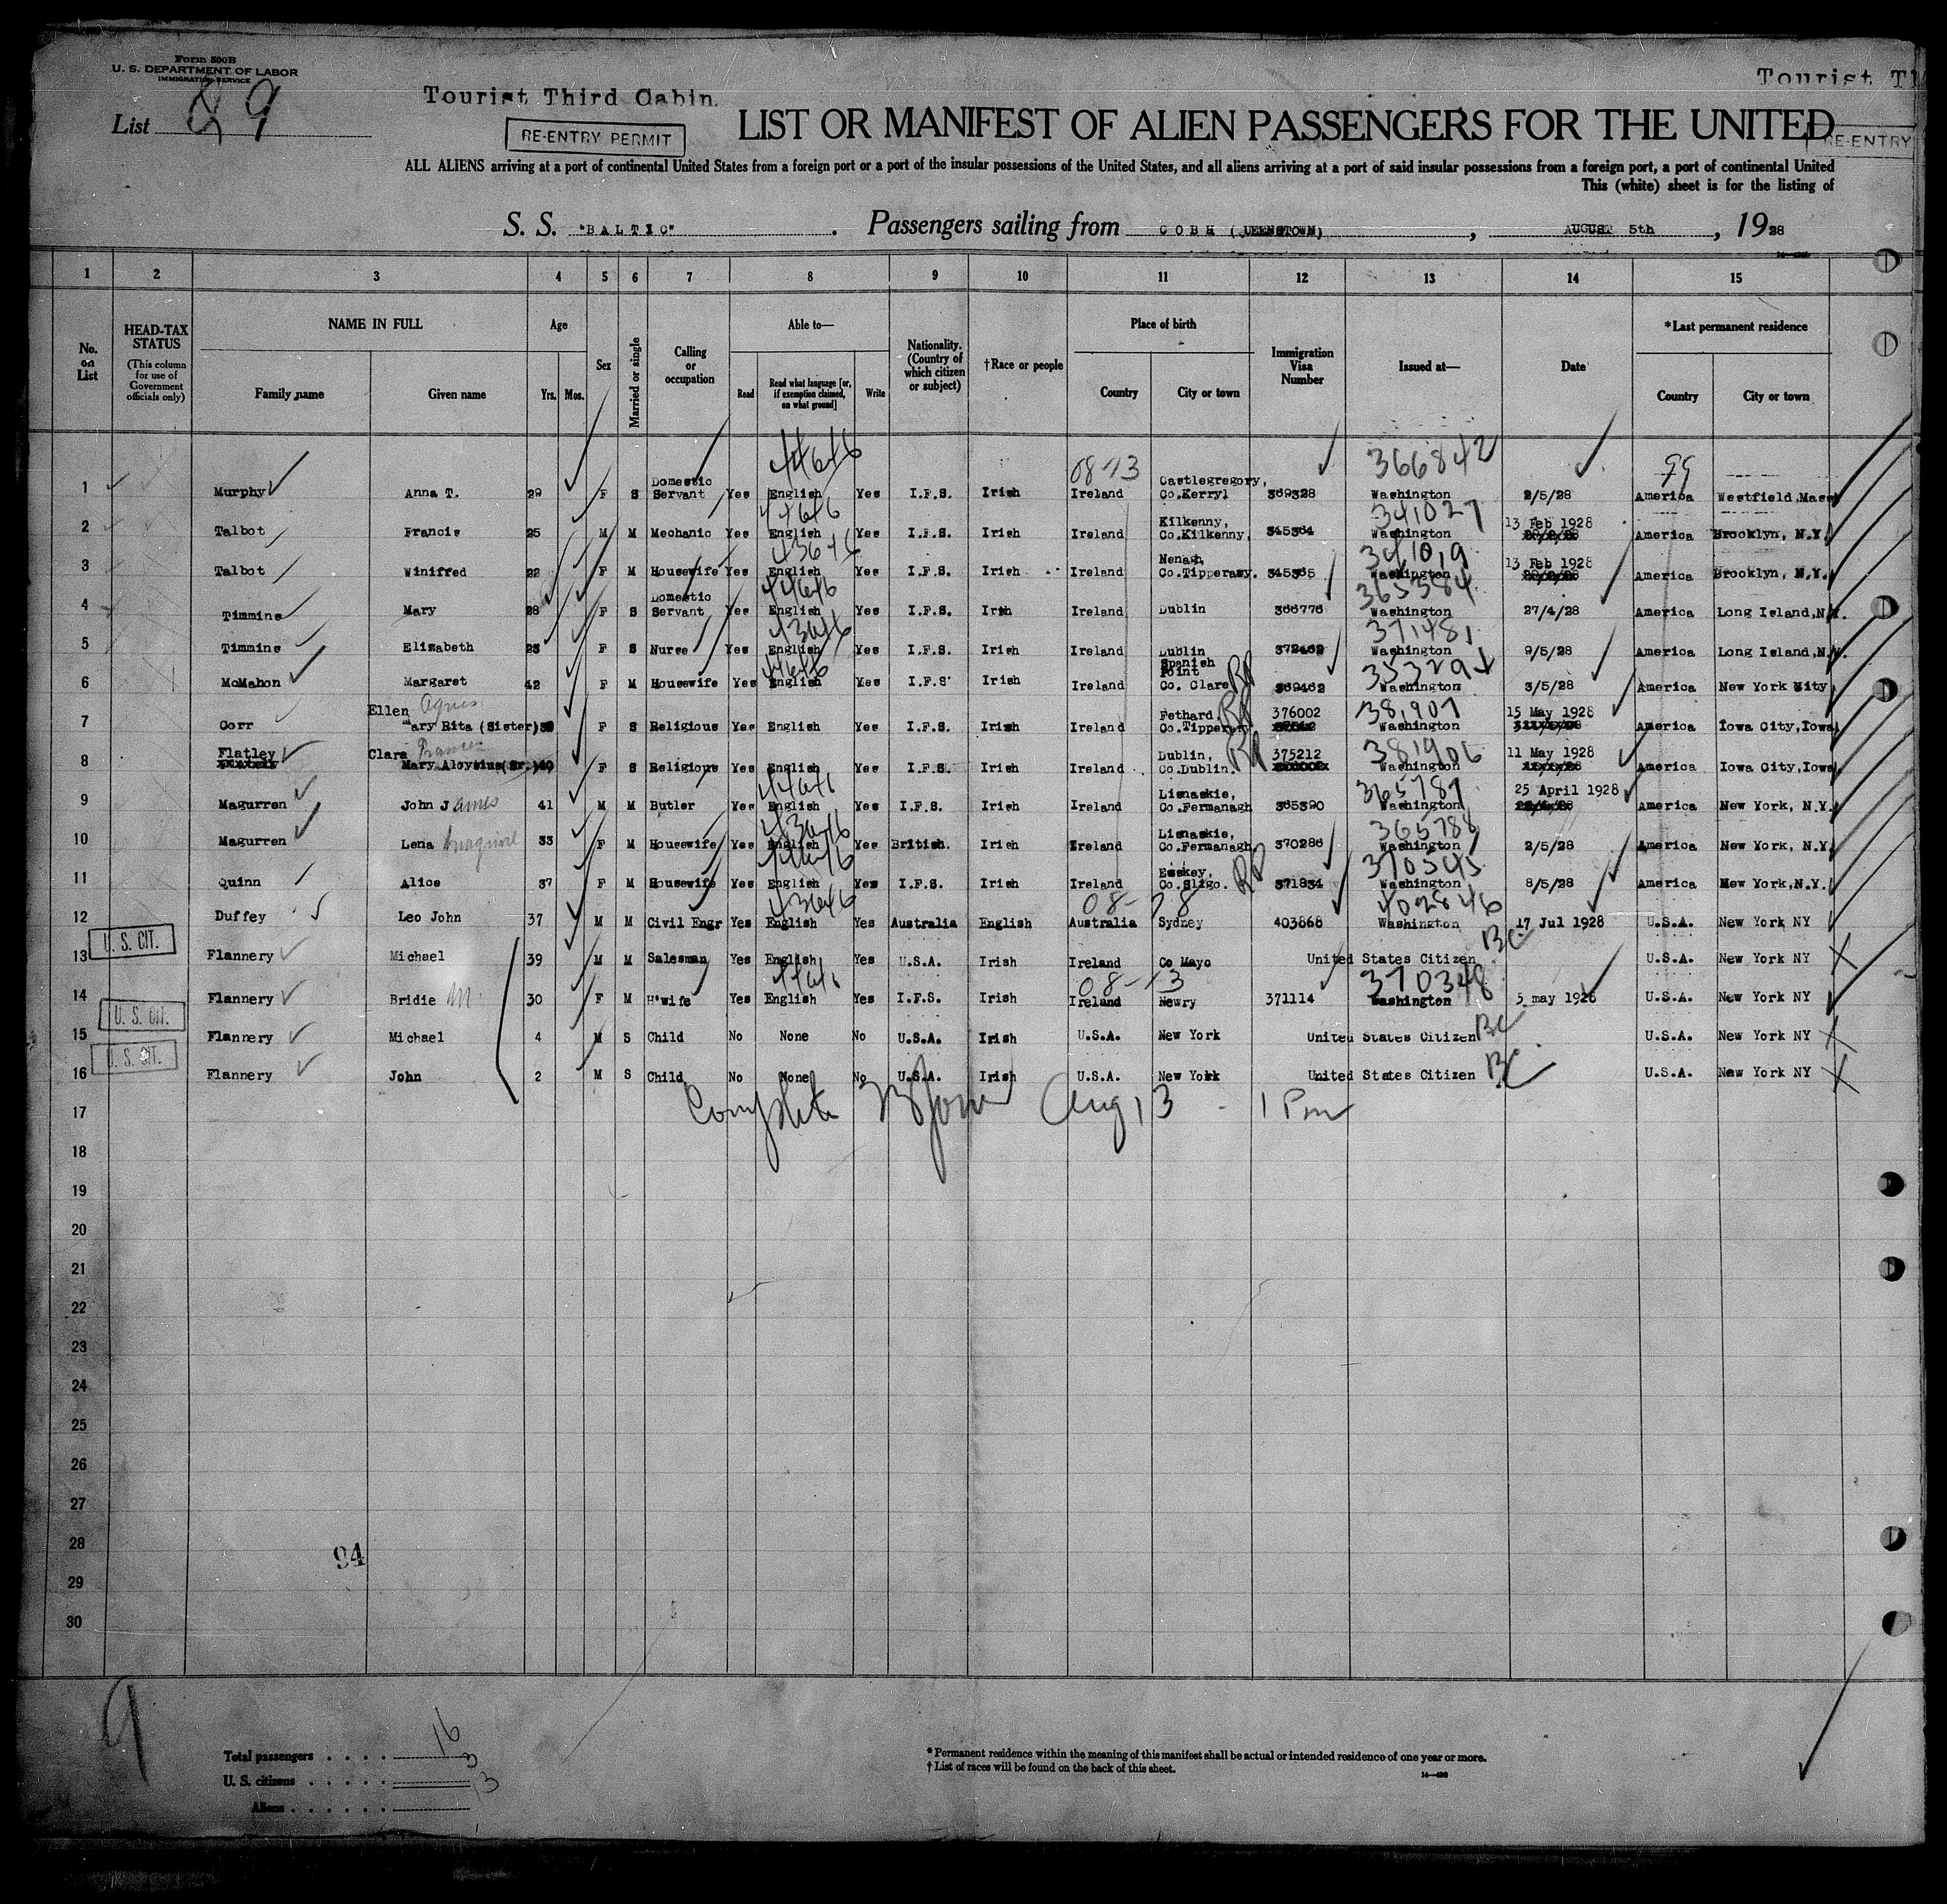 Form 500B
U. S. DEPARTMENT OF LABOR
IMMIGRATION SERVICE
List 29
Tourist Third Cabin.
RE-ENTRY PERMIT
Tourist Th
RE-ENTRY
LIST OR MANIFEST OF ALIEN PASSENGERS FOR THE UNITED
ALL ALIENS arriving at a port of continental United States from a foreign port or a port of the insular possessions of the United States, and all aliens arriving at a port of said insular possessions from a foreign port, a port of continental United
This (white) sheet is for the listing of
S. S. "BALTIC". Passengers sailing from COBH (UEENSTOWN), AUGUST 5th, 1928
1 2 3 4 5 6 7 8 9 10 11 12 13 14 15
No. on List
HEAD-TAX STATUS
(This column for use of Government officials only)
NAME IN FULL
Family name
Given name
Age
Yrs. Mos.
Sex
Married or single
Calling or occupation
Able to—
Read
Read what language [or, if exemption claimed, on what ground]
Write
Nationality. (Country of which citizen or subject)
†Race or people
Place of birth
Country
City or town
Immigration Visa Number
Issued at—
Date
*Last permanent residence
Country
City or town
44646 08-13 366842 99
1 Murphy Anna T. 29 F S Domestic Servant Yes English Yes I.F.S. Irish Ireland Castlegregory, Co.Kerryl 369328 Washington 2/5/28 America Westfield,Mass
44646 341027
2 Talbot Francis 25 M M Mechanic Yes English Yes I.F.S. Irish Ireland Kilkenny, Co.Kilkenny, 345364 Washington 13 Feb 1928 America Brooklyn, N.Y.
43646 341019
3 Talbot Winifred 22 F M Housewife Yes English Yes I.F.S. Irish Ireland Nenagh, Co.Tipperary. 345365 Washington 13 Feb 1928 America Brooklyn, N.Y.
44646 365384
4 Timmins Mary 28 F S Domestic Servant Yes English Yes I.F.S. Irish Ireland Dublin 366776 Washington 27/4/28 America Long Island,N.Y.
43646 371481
5 Timmins Elizabeth 23 F S Nurse Yes English Yes I.F.S. Irish Ireland Dublin 372462 Washington 9/5/28 America Long Island,N.Y.
44646 353294
6 McMahon Margaret 42 F M Housewife Yes English Yes I.F.S Irish Ireland Spanish Point Co. Clare 369462 Washington 3/5/28 America New York City
Ellen Agnes 381907
7 Corr Mary Rita (Sister) F S Religious Yes English Yes I.F.S. Irish Ireland Fethard, Co.Tipperary 376002 Washington 15 May 1928 America Iowa City,Iowa
Clara Frances 381906
8 Flatley Mary Aloysius(Sr.) 40 F S Religious Yes English Yes I.F.S. Irish Ireland Dublin, Co.Dublin. 375212 Washington 11 May 1928 America Iowa City,Iowa
44646 365787
9 Magurren John James 41 M M Butler Yes English Yes I.F.S. Irish Ireland Lisnaskie, Co.Fermanagh 365390 Washington 25 April 1928 America New York, N.Y.
43646 365788
10 Magurren Lena 33 F M Housewife Yes English Yes British. Irish Ireland Lisnaskie, Co.Fermanagh 370286 Washington 2/5/28 America New York, N.Y.
44646 370345
11 Quinn Alice 37 F M Housewife Yes English Yes I.F.S. Irish Ireland Co.Sligo. 371834 Washington 8/5/28 America New York,N.Y.
43646 08-78 402846
12 Duffey Leo John 37 M M Civil Engr Yes English Yes Australia English Australia Sydney 403868 Washington 17 Jul 1928 U.S.A. New York NY
U. S. CIT.
13 Flannery Michael 39 M M Salesman Yes English Yes U.S.A. Irish Ireland Co Mayo United States Citizen BC U.S.A. New York NY
08-13 370348
14 Flannery Bridie M 30 F M H'wife Yes English Yes I.F.S. Irish Ireland Newry 371114 Washington 5 may 1926 U.S.A. New York NY
U. S. CIT.
15 Flannery Michael 4 M S Child No None No U.S.A. Irish U.S.A. New York United States Citizen BC U.S.A. New York NY
U. S. CIT.
16 Flannery John 2 M S Child No None No U.S.A. Irish U.S.A. New York United States Citizen BC U.S.A. New York NY
17 Complete Aug 13 - 1 Pm
18
19
20
21
22
23
24
25
26
27
28
94
29
30
9
Total passengers . . . . 16
U. S. citizens . . . . . 3
Aliens . . . . . . 13
* Permanent residence within the meaning of this manifest shall be actual or intended residence of one year or more.
† List of races will be found on the back of this sheet.